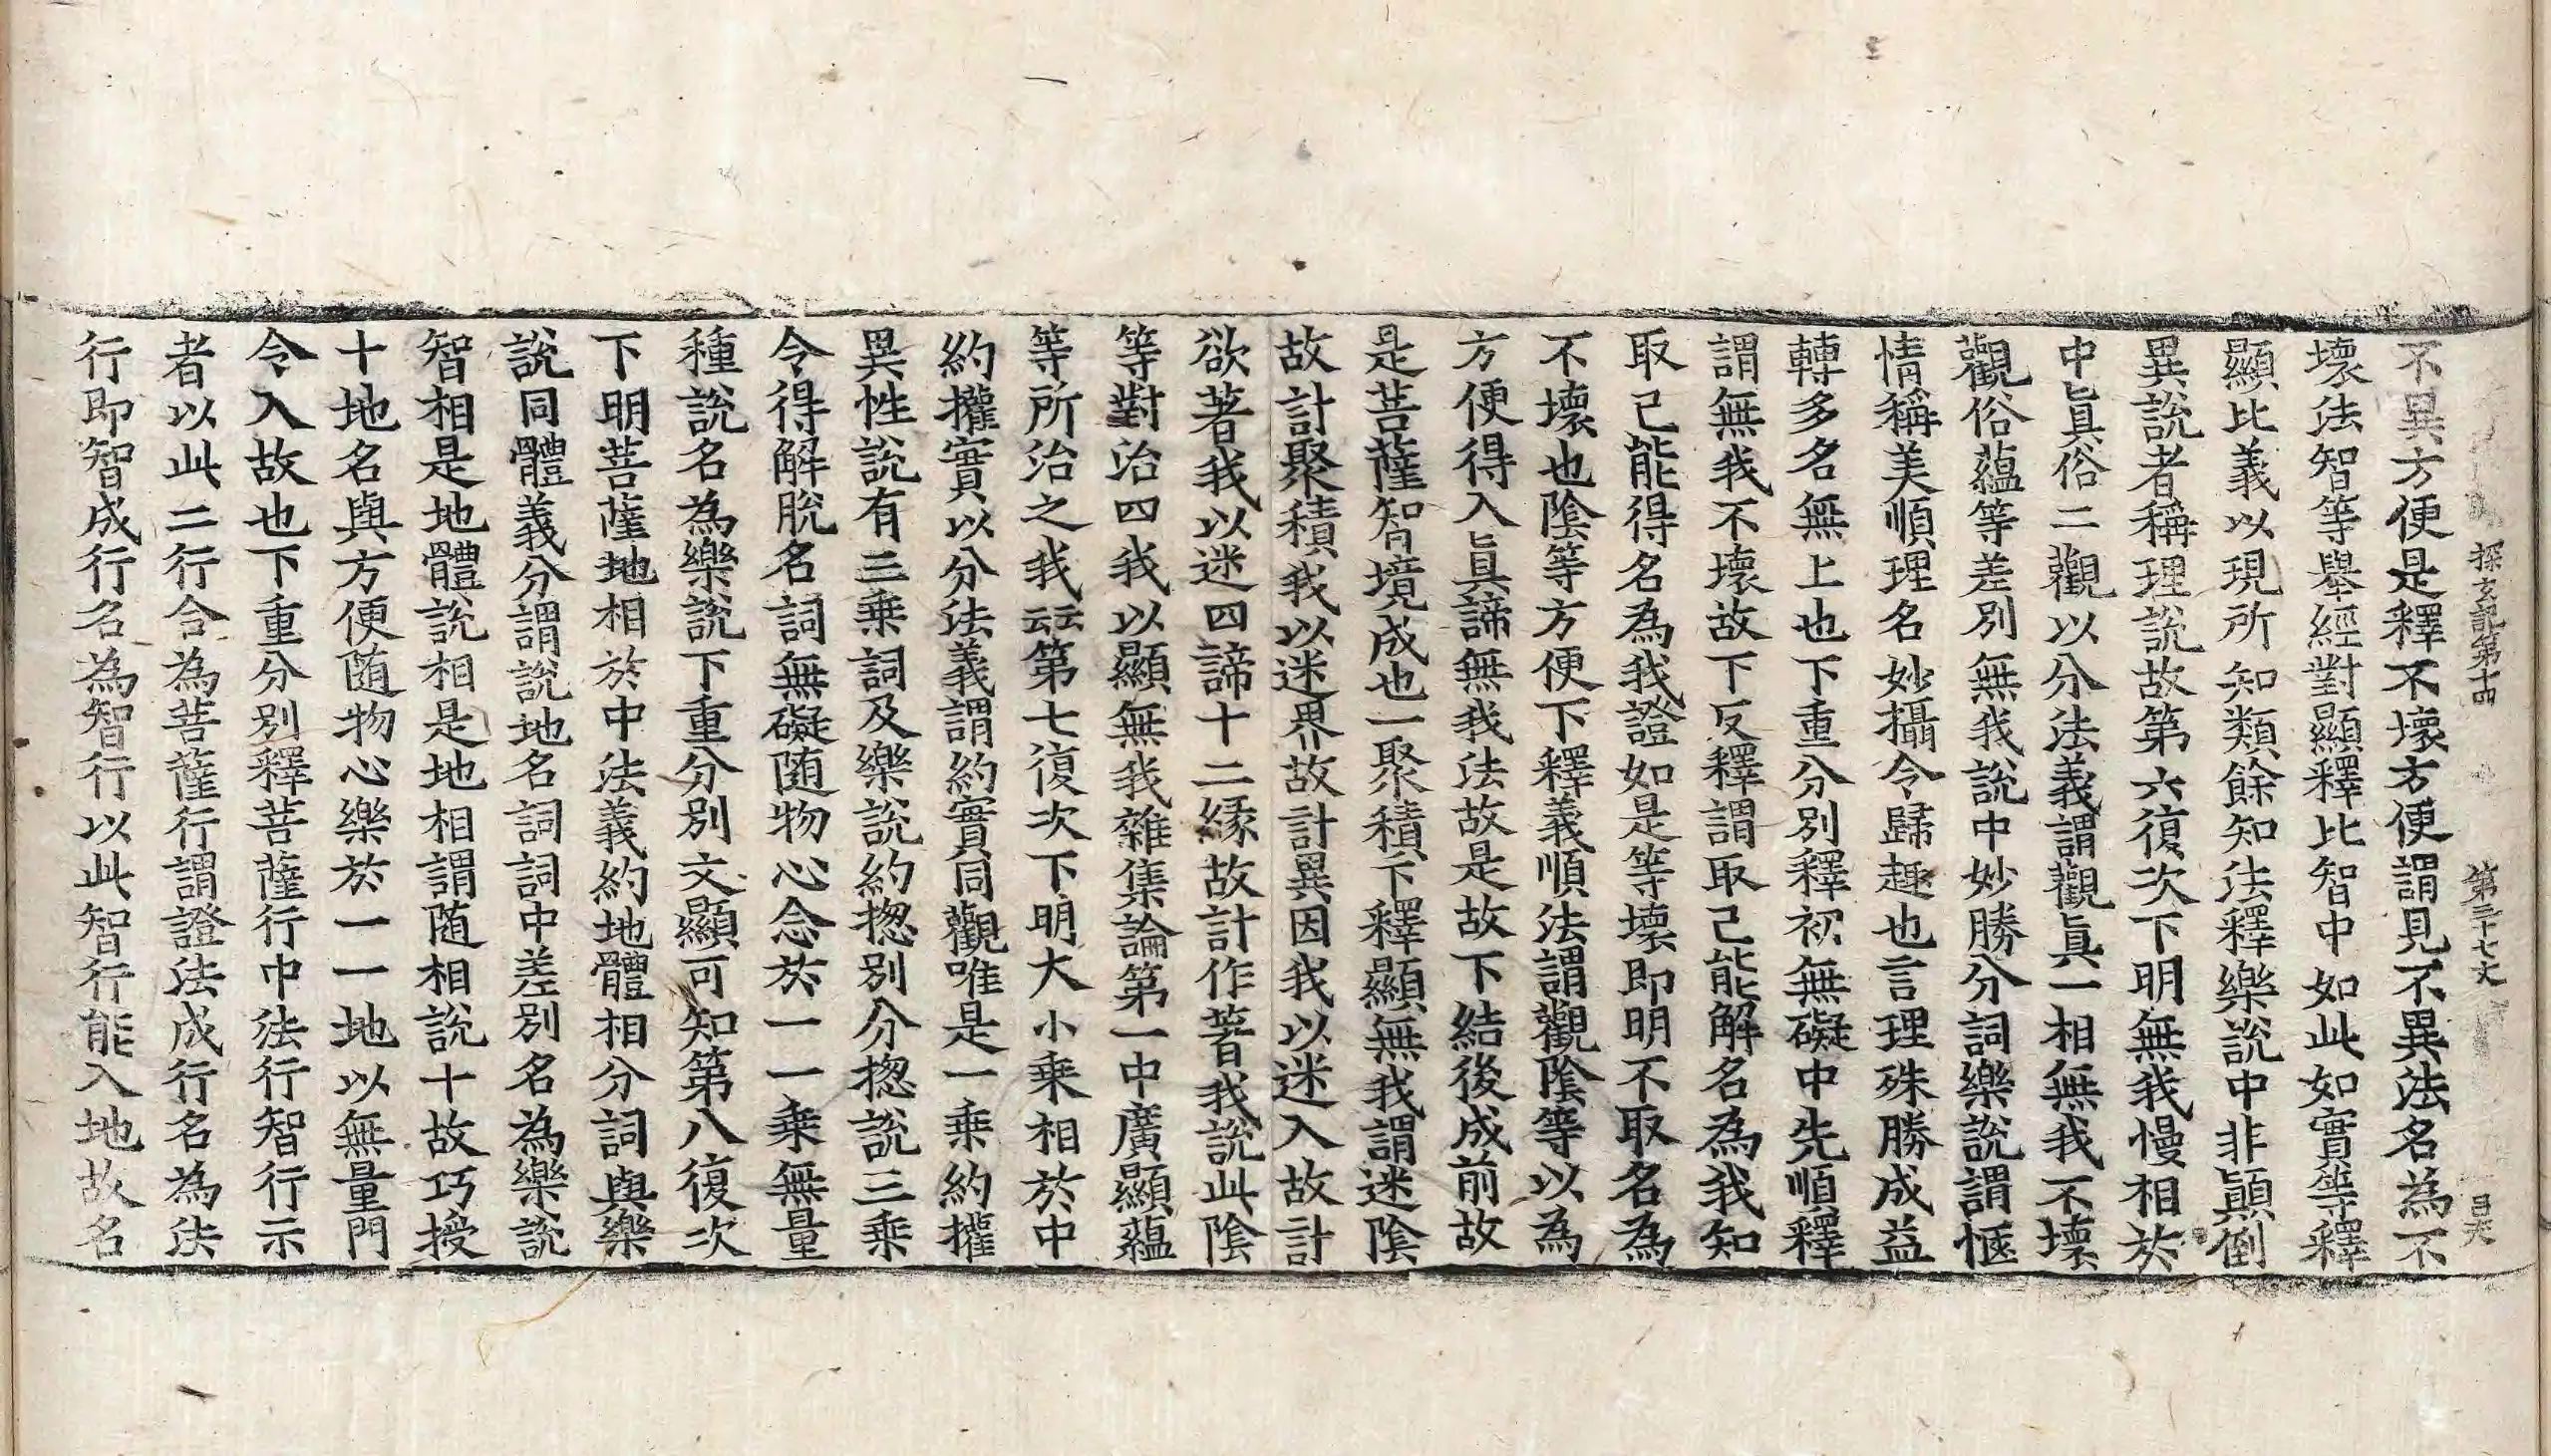 探玄記第十四 第三十七丈 昌天
不異方便是釋不壞方便謂見不異法名為不
壞法智等舉經對顯釋比智中如此如實等釋
顯比義以現所知類餘知法釋樂說中非顛倒
異說者稱理說故第六復次下明無我慢相於
中眞俗二觀以分法義謂觀眞一相無我不壞
觀俗蘊等差別無我說中妙勝分詞樂說謂愜
情稱美順理名妙攝令歸趣也言理殊勝成益
轉多名無上也下重分別釋初無礙中先順釋
謂無我不壞故下反釋謂取己能解名為我知
取己能得名為我證如是等壞即明不取名為
不壞也陰等方便下釋義順法謂觀陰等以為
方便得入眞諦無我法故是故下結後成前故
是菩薩智境成也一聚積下釋顯無我謂迷陰
故計聚積我以迷界故計異因我以迷入故計
欲著我以迷四諦十二緣故計作著我說此陰
等對治四我以顯無我雜集論第一中廣顯蘊
等所治之我云云第七復次下明大小乘相於中
約攉實以分法義謂約實同觀唯是一乘約攉
異性說有三乘詞及樂說約揔別分揔說三乘
令得解脫名詞無礙随物心念於一一乘無量
種說名為樂說下重分別文顯可知第八復次
下明菩薩地相於中法義約地體相分詞與樂
說同體義分謂說地名詞詞中差別名為樂說
智相是地體說相是地相謂随相說十故巧授
十地名與方便随物心樂於一一地以無量門
令入故也下重分別釋菩薩行中法行智行示
者以此二行合為菩薩行謂證法成行名為法
行即智成行名為智行以此智行能入地故名